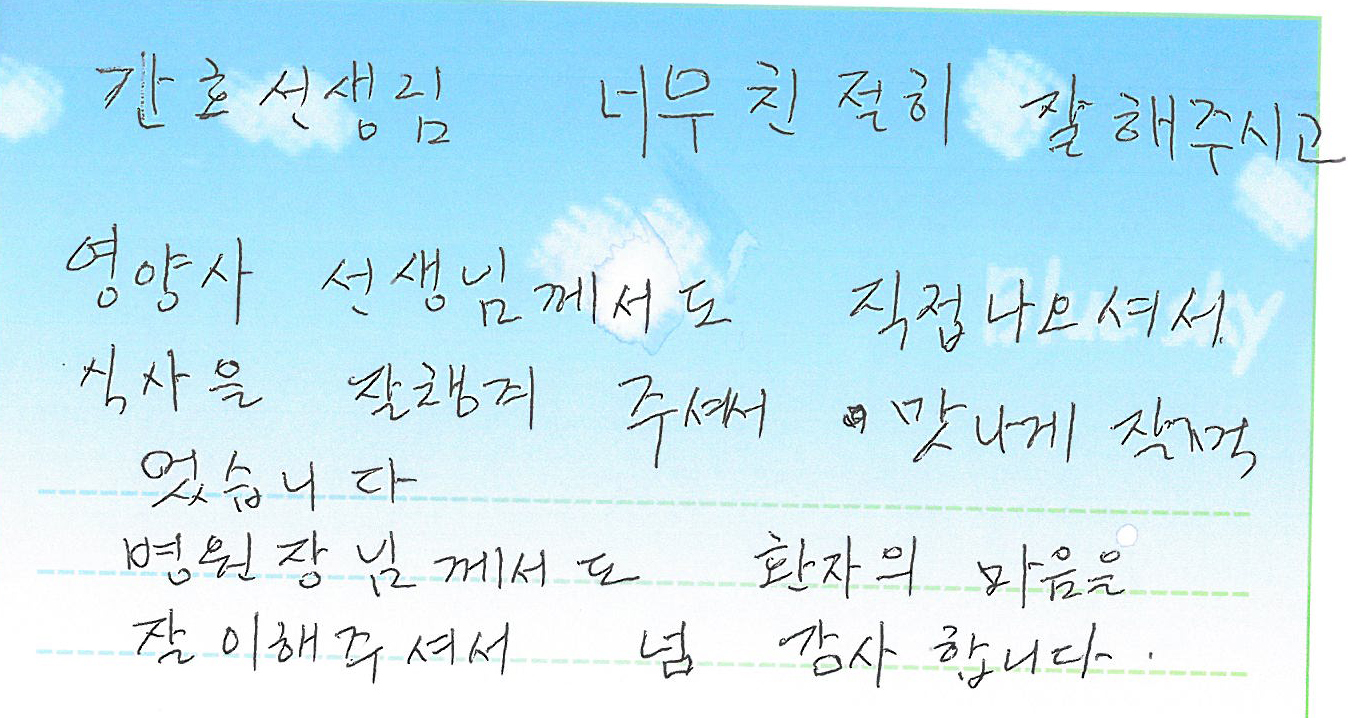 간호선생님 너무 친절히 잘 해주시고
영양사 선생님께서도 직접나오셔서
식사을 잘챙겨 주셔서 맛나게 잘먹
었습니다
병원장님께서도 환자의 마음을
잘이해주셔서 넘 감사합니다.
Blue sky